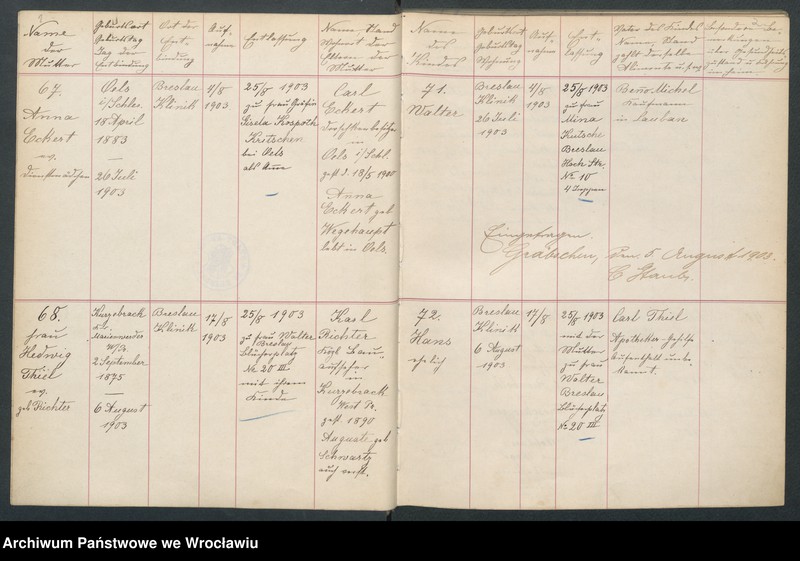 Name
der
Mutter
Geburtsort
Geburtstag
Tag der
Entbindung
Ort der
Ent-
bindung
Auf-
nahme
Entlassung
Name, Stand
Wohnort der
Eltern der
Mutter
67.
Anna
Eckert
ev.
Dienstmädchen
Oels
i/Schles.
18 April
1883
—
26 Juli
1903
Breslau
Klinik
4/8
1903
25/8 1903
zu Frau Gräfin
Gisela Kospoth
Kritschen
bei Oels
als Amme
Carl
Eckert
in
Oels i/Schl.
gest. d. 18/5 1900
Anna
Eckert geb
Wegehaupt
lebt in Oels.
68.
Frau
Hedwig
Thiel
ev.
geb Richter
Kurzebrack
Marienwerder
W/Pr.
2 September
1875
—
6 August
1903
Breslau
Klinik
17/8
1903
25/8 1903
zu Frau Walter
Breslau
Blücherplatz
Nr 20 III
mit ihrem
Kinde
Karl
Richter
Kgl Bau-
aufseher
in
Kurzebrack
West Pr.
gest. 1890
Auguste geb
Schwartz
auch verst.
Name
des
Kindes
Geburtsort
Geburtstag
Wohnung
Auf-
nahme
Ent-
lassung
Vater des Kindes
Name, Stand
zahlt derselbe
Alimente u.
Besondere Be-
merkungen
über Gesundheits
zustand u
71.
Walter
Breslau
Klinik
26 Juli
1903
4/8
1903
25/8 1903
zu Frau
Mina
Kutsche
Breslau
Nr 10
4 Treppen
Benno Michel
Kaufmann
in Lauban
Eingetragen.
Gräbschen, den 5. August 1903.
72.
Hans
ehelich
Breslau
Klinik
6 August
1903
17/8
25/8 1903
mit der
Mutter
zu Frau
Walter
Breslau
Blücherplatz
Nr 20 III
Carl Thiel
Apotheker-Gehilfe
Aufenthalt unbe-
kannt.
Archiwum Państwowe we Wrocławiu